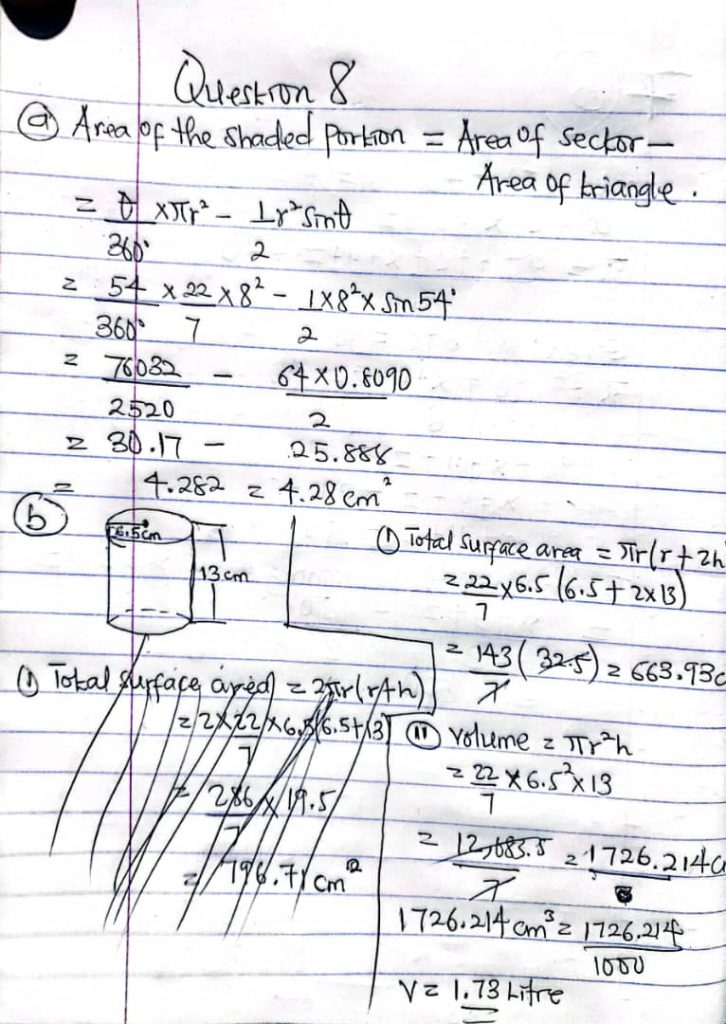 Question 8
(a) Area of the shaded portion = Area of sector –
Area of triangle .
= θ/360° × πr² – 1/2 r² Sinθ
= 54/360° × 22/7 × 8² – 1/2 × 8² × Sin 54°
= 76032/2520 – 64 × 0.8090/2
= 30.17 – 25.888
= 4.282 = 4.28 cm²
(b)
6.5cm
13 cm
(i) Total surface area = πr(r + 2h
= 22/7 × 6.5 (6.5 + 2×13)
= 143/7 (32.5) = 663.93c
(i) Total surface area = 2πr(r+h)
= 2×22/7 × 6.5(6.5+13)
= 286/7 × 19.5
= 796.71 cm²
(ii) Volume = πr²h
= 22/7 × 6.5² × 13
= 12,083.5/7 = 1726.214c
1726.214 cm³ = 1726.214/1000
V = 1.73 Litre